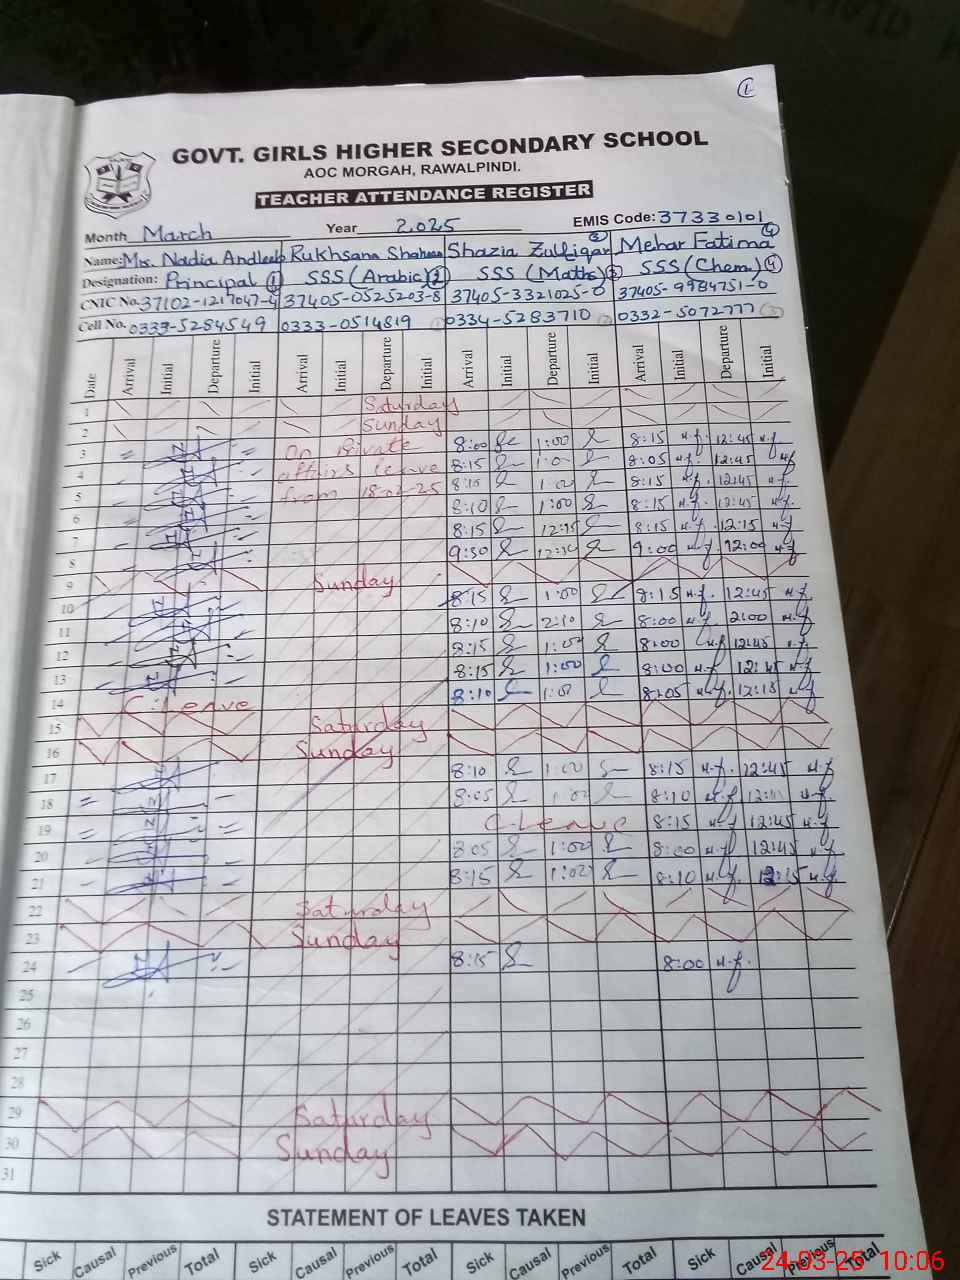 1
GOVT. GIRLS HIGHER SECONDARY SCHOOL
AOC MORGAH, RAWALPINDI.
TEACHER ATTENDANCE REGISTER
Month March Year 2025 EMIS Code: 37330101
Name: Mrs. Nadia Andleeb Rukhsana Shaheen Shazia Zulfiqar Mehar Fatima
Designation: Principal 1 SSS (Arabic) 2 SSS (Maths) 3 SSS (Chem) 4
CNIC No. 37102-1217047-4 37405-0525203-8 37405-3321025-0 37405-9984751-0
Cell No. 0333-5284549 0333-0514819 0334-5283710 0332-5072777
Date Arrival Initial Departure Initial Arrival Initial Departure Initial Arrival Initial Departure Initial Arrival Initial Departure Initial
1 Saturday
2 Sunday
3 On Private 8:00 1:00 8:15 M.f. 12:45 M.f
4 affairs leave 8:15 8:05 M.f. 12:45 M.f
5 from 18-02-25 8:15 M.f. 12:45 M.f.
6 8:10 1:00 8:15 M.f. 12:45 M.f.
7 8:15 8:15 M.f. 12:15 M.f
8 9:30 9:00 M.f. 12:00 M.f
9 Sunday
10 8:15 1:00 8:15 M.f. 12:45 M.f.
11 8:10 2:10 8:00 M.f. 2:00 M.f.
12 8:15 8:00 M.f 12:45 M.f.
13 8:15 1:00 8:00 M.f 12:45 M.f
14 C.Leave 8:10 8:05 M.f. 12:15 M.f
15 Saturday
16 Sunday
17 8:10 1:00 8:15 M.f. 12:45 M.f
18 8:05 8:10 M.f M.f.
19 C-Leave 8:15 M.f 12:45 M.f
20 8:05 1:00 8:00 M.f 12:45 M.f.
21 8:15 1:02 8:10 M.f. 12:15 M.f
22 Saturday
23 Sunday
24 8:15 8:00 M.f.
25
26
27
28
29 Saturday
30 Sunday
31
STATEMENT OF LEAVES TAKEN
Sick Causal Previous Total Sick Causal Previous Total Sick Causal Previous Total Sick Causal Previous Total
24-03-25 10:06